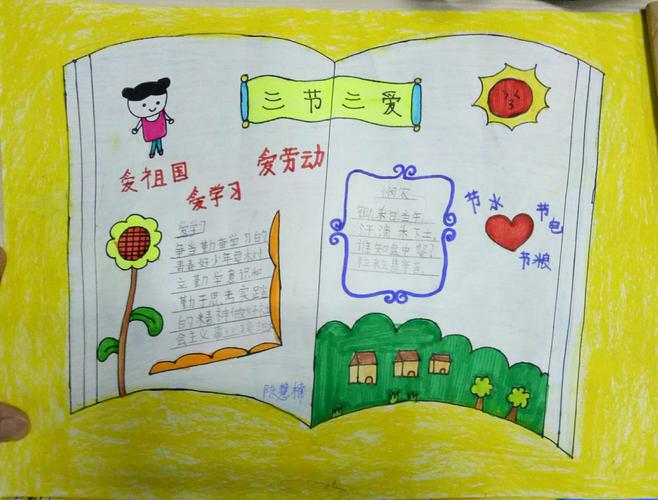 三节三爱
爱祖国
爱学习
爱劳动
爱学习
争当勤奋学习的
青春好少年要树
立勤学意识和
勤于思考实践
的精神做好社
会主义事业接班
陈慧楠
悯农
锄禾日当午
汗滴禾下土
谁知盘中餐
粒粒皆辛苦
节水
节电
节粮